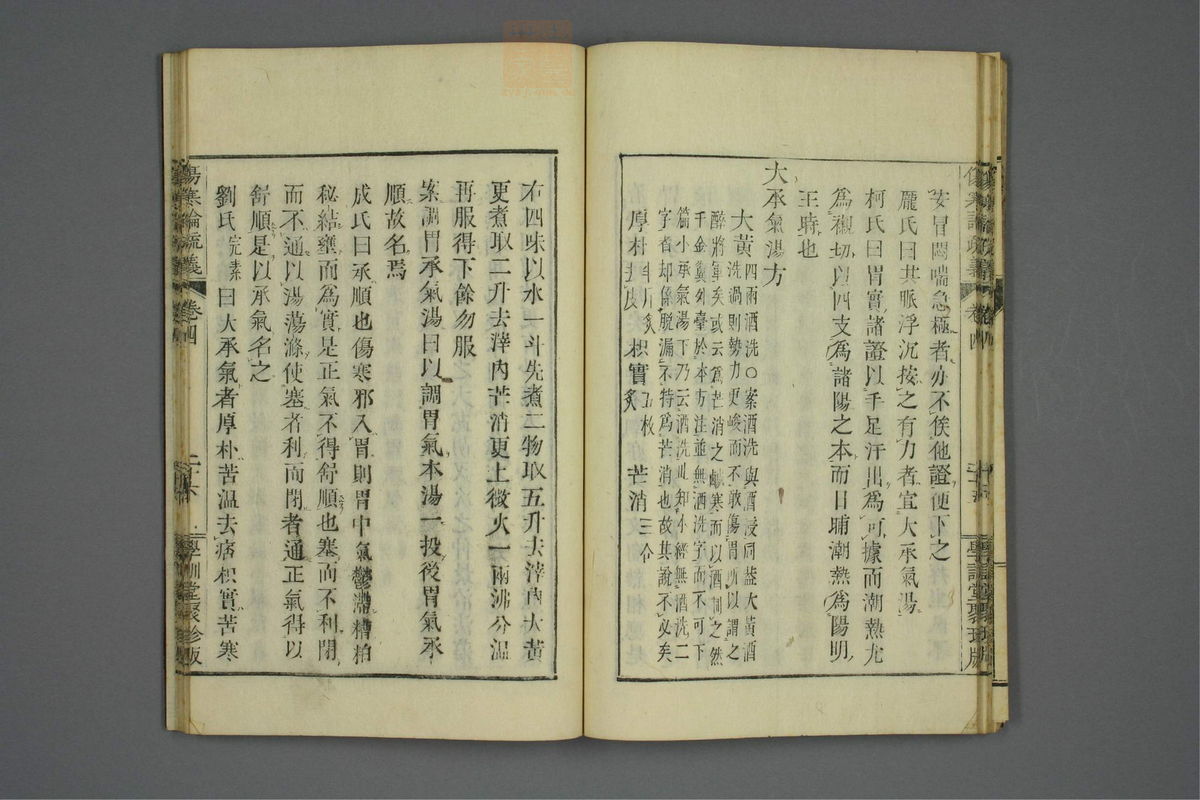 妄冒悶喘急極者亦不俟他證便下之
龐氏曰其脈浮沉按之有力者宜大承氣湯
柯氏曰胃實諸證以手足汗出爲可據而潮熱尤
爲襯切以四支爲諸陽之本而日晡潮熱爲陽明
王時也
大承氣湯方
大黃四兩酒洗〇案酒洗與酒浸同蓋大黃酒
洗過則勢力更峻而不敢傷胃所以謂之
醉將軍矣或云爲芒消之鹹寒而以酒制之然
千金翼外臺於本方法並無酒洗字而不可下
篇小承氣湯下乃云酒洗此知小經無酒洗二
字者却係脫漏不特爲芒消也故其說不必矣
厚朴半斤炙去皮 枳實五枚炙 芒消三合
右四味以水一斗先煮二物取五升去滓內大黃
更煮取二升去滓內芒消更上微火一兩沸分温
再服得下餘勿服
案調胃承氣湯曰以調胃氣本湯一投後胃氣承
順故名焉
成氏曰承順也傷寒邪入胃則胃中氣鬱滯糟粕
秘結壅而爲實是正氣不得舒順也塞而不利閉
而不通以湯蕩滌使塞者利而閉者通正氣得以
舒順是以承氣名之
劉氏完素曰大承氣者厚朴苦温去痞枳實苦寒
傷寒論疏義 卷四 學訓堂聚珍版